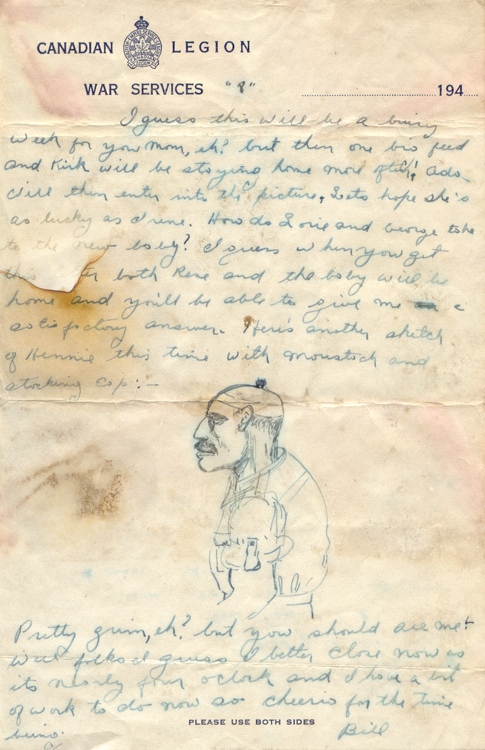 CANADIAN LEGION
WAR SERVICES "8" 194
I guess this will be a busy
week for you mom, eh? but then one big feed
and Kirk will be staying home more often! Ada
C'ill then enter into the picture, Lets hope she's
as lucky as Irene. How do Lorie and George take
to the new baby? I guess when you get
this both Rene and the baby will be
home and you'll be able to give me a
satisfactory answer. Here's another sketch
of Hennie this time with moustach and
stocking cap:-
Pretty grim, eh? but you should see me!
Well folks I guess I better close now as
its nearly four o'clock and I have a bit
of work to do now so cheerio for the time
being.
Bill
PLEASE USE BOTH SIDES